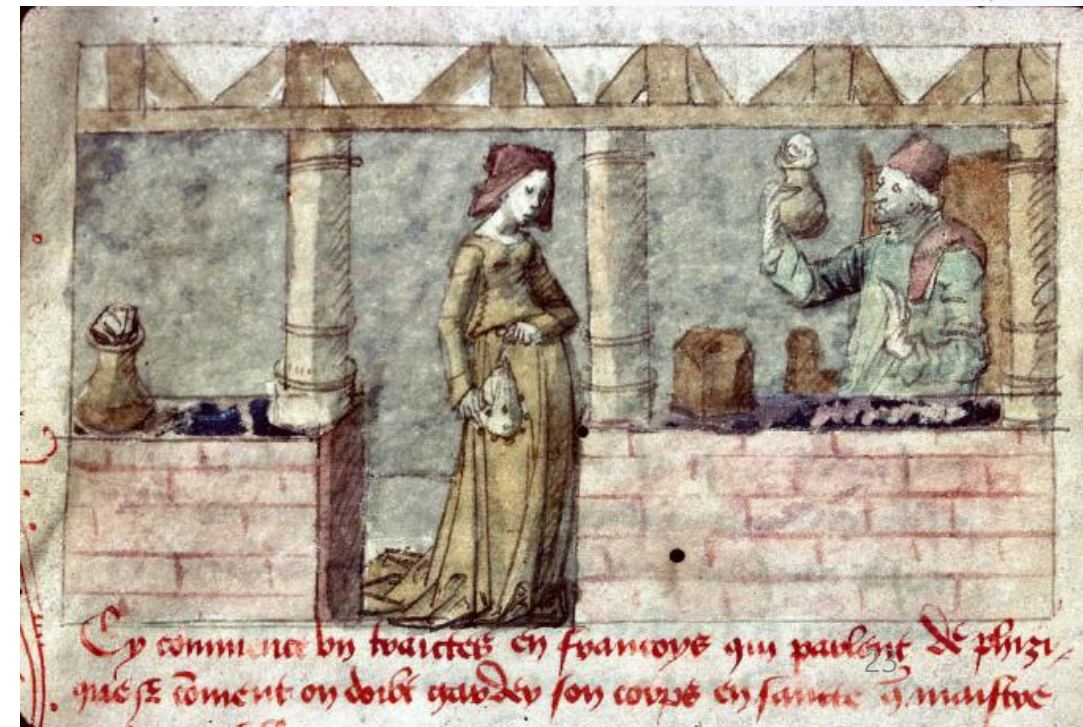 Cy commence vn traictes en francoys qui parlent De phizi-
que et coment on doibt garder son corps en sancte q maistre
23